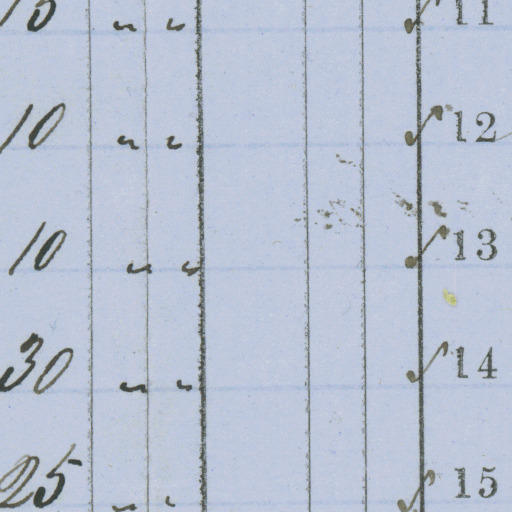 11
10 " " ✓ 12
10 " " ✓ 13
30 " " ✓ 14
25 " " ✓ 15